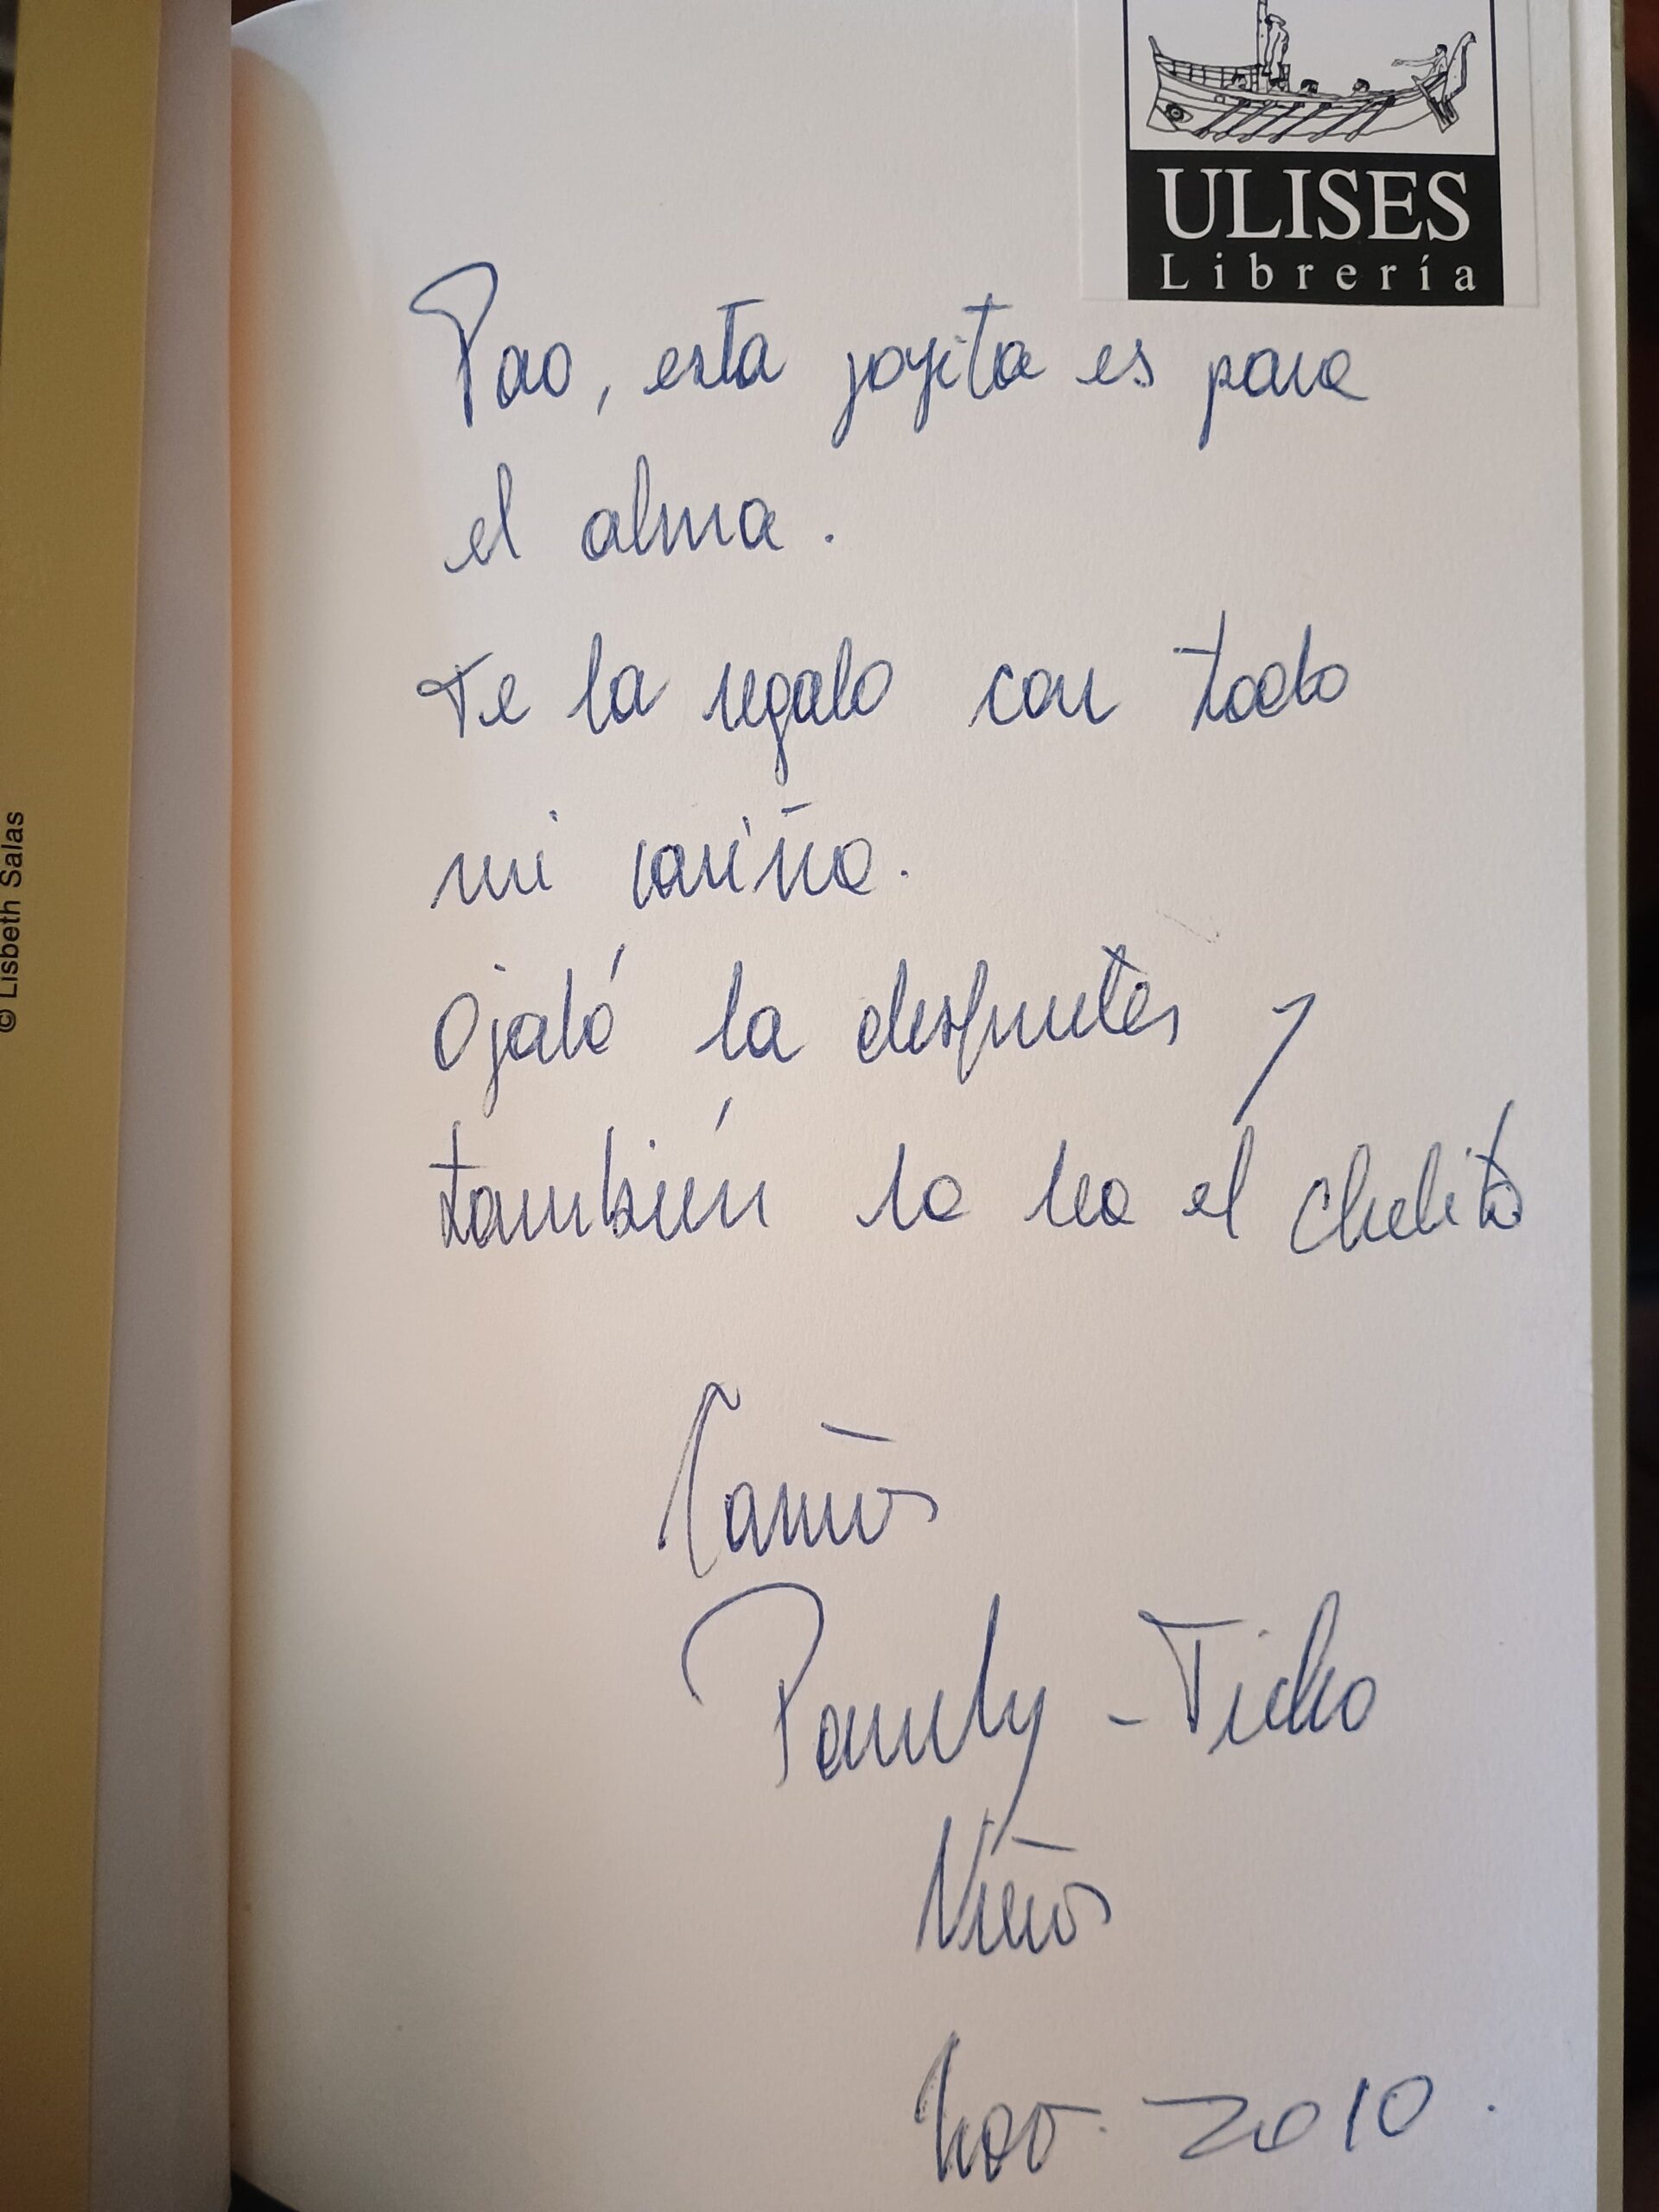 ULISES
Librería
Pao, esta joyita es para
el alma.
Te la regalo con todo
mi cariño.
Ojalá la disfrutes y
también la lea el Chelito
Cariños
Pamely - Ticho
Niños
Nov. 2010.
© Lisbeth Salas